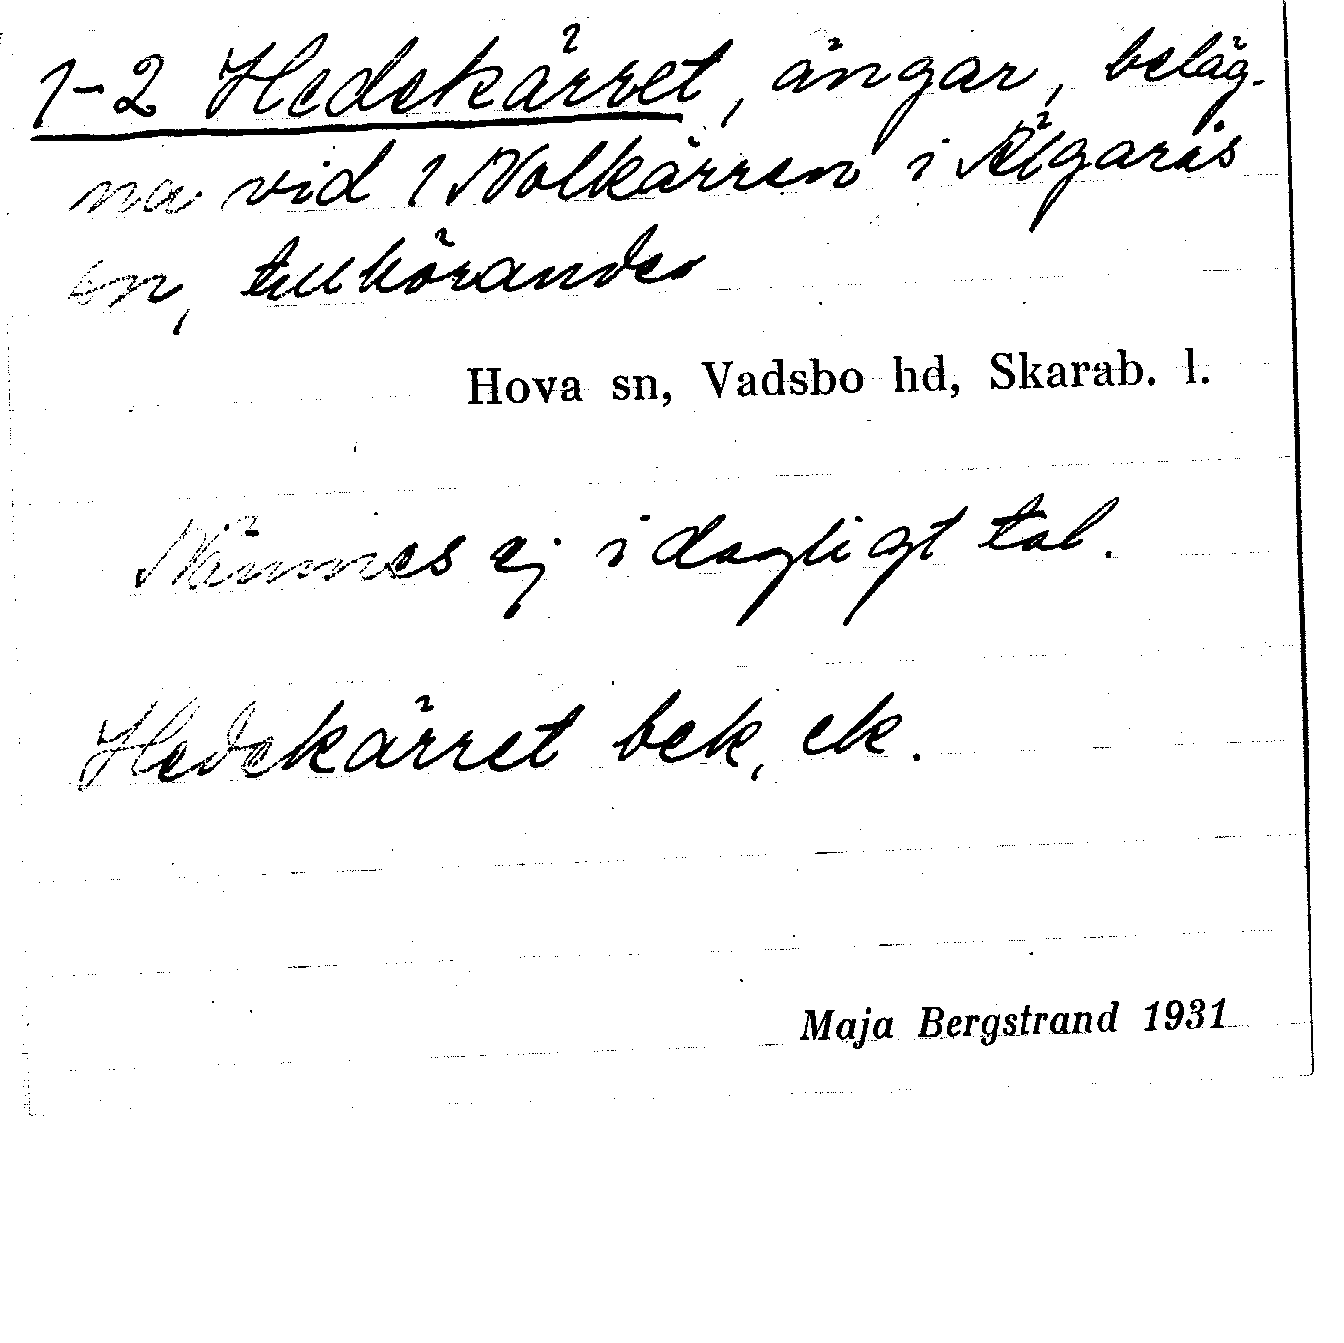 1-2 Hedekärret, ängar, beläg-
na vid 1 Nolkärren i Älgarås
sn, tillhörandes
Hova sn, Vadsbo hd, Skarab. l.
Nämnes ej i dagligt tal.
Hedekärret bek, ek.
Maja Bergstrand 1931